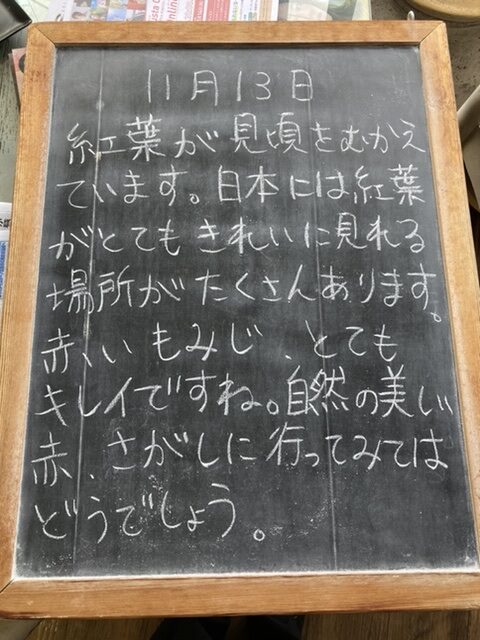 11月13日
紅葉が見頃をむかえ
ています。日本には紅葉
がとてもきれいに見れる
場所がたくさんあります。
赤いもみじ、とても
キレイですね。自然の美しい
赤、さがしに行ってみては
どうでしょう。